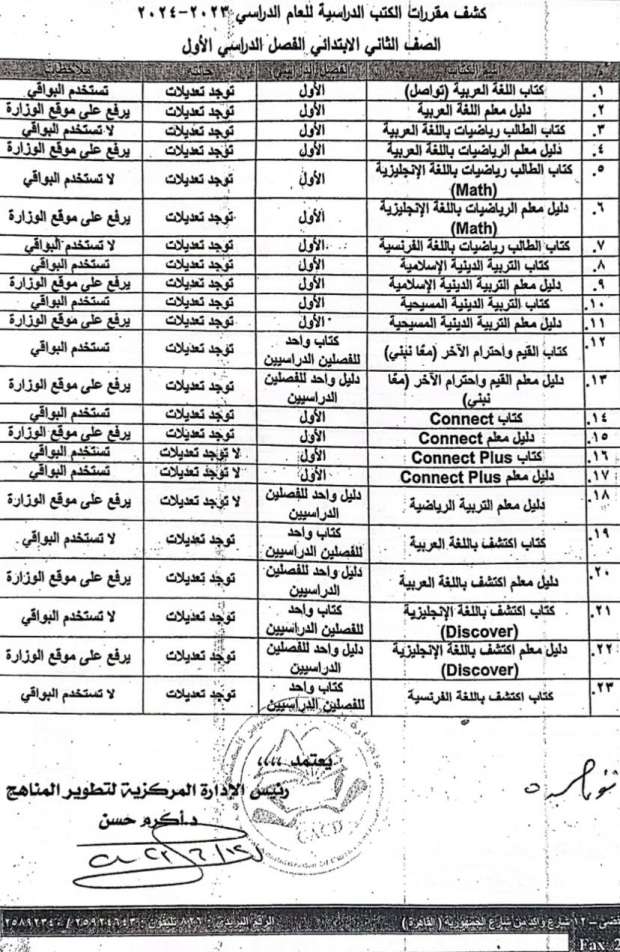 كشف مقررات الكتب الدراسية للعام الدراسي ٢٠٢٣-٢٠٢٤
الصف الثاني الابتدائي الفصل الدراسي الأول
م اسم الكتاب الفصل الدراسي حالته ملاحظات
١. كتاب اللغة العربية (تواصل) الأول توجد تعديلات تستخدم البواقي
٢. دليل معلم اللغة العربية الأول توجد تعديلات يرفع على موقع الوزارة
٣. كتاب الطالب رياضيات باللغة العربية الأول توجد تعديلات لا تستخدم البواقي
٤. دليل معلم الرياضيات باللغة العربية الأول توجد تعديلات يرفع على موقع الوزارة
٥. كتاب الطالب رياضيات باللغة الإنجليزية الأول توجد تعديلات لا تستخدم البواقي
(Math)
٦. دليل معلم الرياضيات باللغة الإنجليزية الأول توجد تعديلات يرفع على موقع الوزارة
(Math)
٧. كتاب الطالب رياضيات باللغة الفرنسية الأول توجد تعديلات لا تستخدم البواقي
٨. كتاب التربية الدينية الإسلامية الأول توجد تعديلات تستخدم البواقي
٩. دليل معلم التربية الدينية الإسلامية الأول توجد تعديلات يرفع على موقع الوزارة
١٠. كتاب التربية الدينية المسيحية الأول توجد تعديلات تستخدم البواقي
١١. دليل معلم التربية الدينية المسيحية الأول توجد تعديلات يرفع على موقع الوزارة
١٢. كتاب القيم واحترام الآخر (معًا نبني) كتاب واحد توجد تعديلات تستخدم البواقي
للفصلين الدراسيين
١٣. دليل معلم القيم واحترام الآخر (معًا دليل واحد للفصلين توجد تعديلات يرفع على موقع الوزارة
نبني) الدراسيين
١٤. كتاب Connect الأول توجد تعديلات تستخدم البواقي
١٥. دليل معلم Connect الأول توجد تعديلات يرفع على موقع الوزارة
١٦. كتاب Connect Plus الأول لا توجد تعديلات تستخدم البواقي
١٧. دليل معلم Connect Plus الأول لا توجد تعديلات تستخدم البواقي
١٨. دليل معلم التربية الرياضية دليل واحد للفصلين لا توجد تعديلات يرفع على موقع الوزارة
الدراسيين
١٩. كتاب اكتشف باللغة العربية كتاب واحد توجد تعديلات لا تستخدم البواقي
للفصلين الدراسيين
٢٠. دليل معلم اكتشف باللغة العربية دليل واحد للفصلين توجد تعديلات يرفع على موقع الوزارة
الدراسيين
٢١. كتاب اكتشف باللغة الإنجليزية كتاب واحد توجد تعديلات لا تستخدم البواقي
(Discover) للفصلين الدراسيين
٢٢. دليل معلم اكتشف باللغة الإنجليزية دليل واحد للفصلين توجد تعديلات يرفع على موقع الوزارة
(Discover) الدراسيين
٢٣. كتاب اكتشف باللغة الفرنسية كتاب واحد توجد تعديلات لا تستخدم البواقي
للفصلين الدراسيين
يعتمد ،،،،
رئيس الإدارة المركزية لتطوير المناهج
د.أكرم حسن
CACD
١٢ شارع واكد من شارع الجمهورية (القاهرة) الرقم البريدي: ٨٢٦ تليفون: ٢٥٩٢٤٦٤٣
Fax